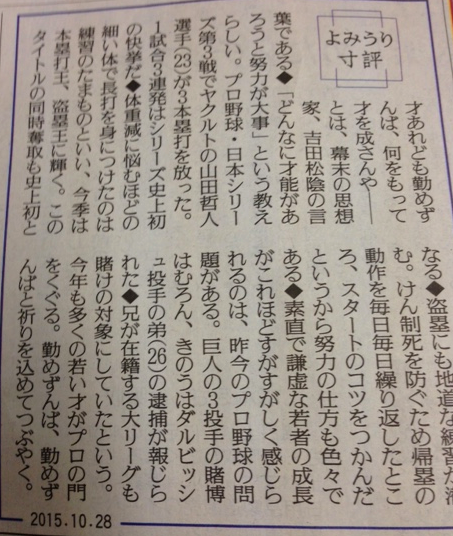 よみうり
寸評
才あれども勤めず
んば、何をもって
才を成さんや――
とは、幕末の思想
家、吉田松陰の言
葉である◆「どんなに才能があ
ろうと努力が大事」という教え
らしい。プロ野球・日本シリー
ズ第3戦でヤクルトの山田哲人
選手(23)が3本塁打を放った。
1試合3連発はシリーズ史上初
の快挙だ◆体重減に悩むほどの
細い体で長打を身につけたのは
練習のたまものといい、今季は
本塁打王、盗塁王に輝く。この
タイトルの同時奪取も史上初と
なる◆盗塁にも地道な練習が
む。けん制死を防ぐため帰塁の
動作を毎日毎日繰り返したとこ
ろ、スタートのコツをつかんだ
というから努力の仕方も色々で
ある◆素直で謙虚な若者の成長
がこれほどすがすがしく感じら
れるのは、昨今のプロ野球の問
題がある。巨人の3投手の賭博
はむろん、きのうはダルビッシ
ュ投手の弟(26)の逮捕が報じら
れた◆兄が在籍する大リーグも
賭けの対象にしていたという。
今年も多くの若い才がプロの門
をくぐる。勤めずんば、勤めず
んばと祈りを込めてつぶやく。
2015.10.28